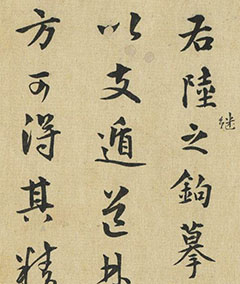 右陸继之鉤摹
以支遁道林
方可得其精